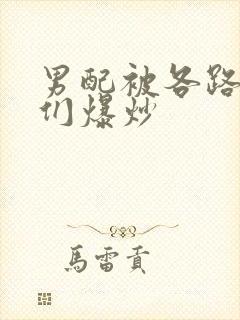 男配被各路
们爆炒
馬雷貢